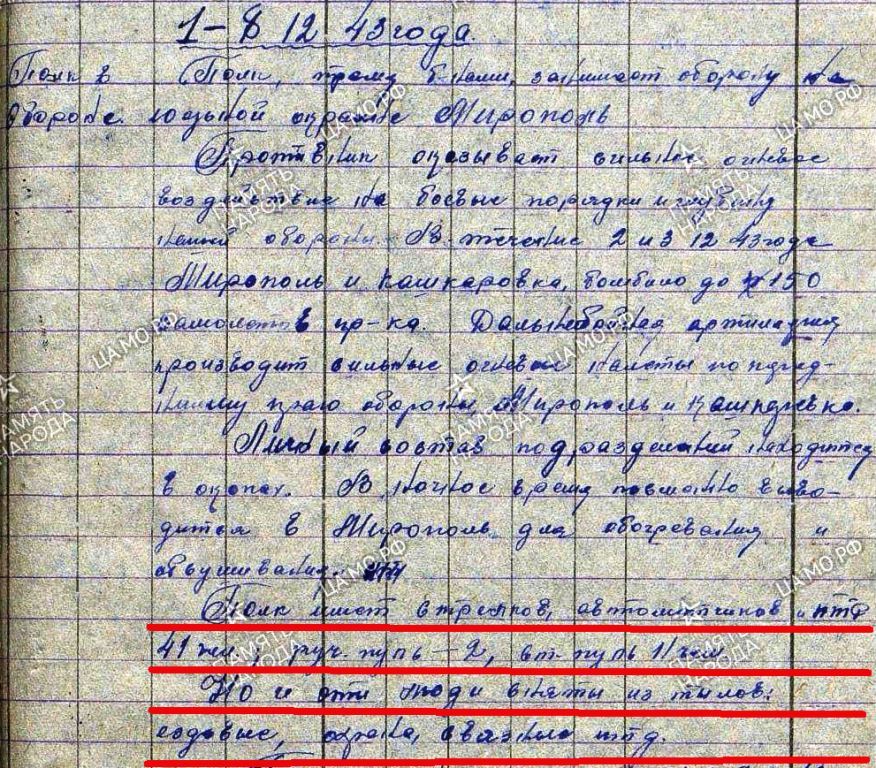 1–8 12 43 года.
Полк в Полк, тремя б-нами, занимает оборону на
обороне. южной окраине Мирополь
Противник оказывает сильное огневое
воздействие на боевые порядки и глубину
нашей обороны. В течение 2 и 3 12 43 года
Мирополь и Кашкаровка, бомбило до 150
самолетов пр-ка. Дальнебойная артиллерия
производит сильные огневые налеты по перед-
нему краю обороны, Мирополь и
Личный состав подразделений находится
в окопах. В ночное время повзводно выво-
дится в Мирополь для обогревания и
обсушивания.
Полк имеет стрелков, автоматчиков и ПТР
41 чел, руч. пуль – 2, ст. пуль 1
Но и эти люди взяты из тылов:
ездовые, охрана, связные и т.д.
ЦАМО.РФ
ПАМЯТЬ НАРОДА